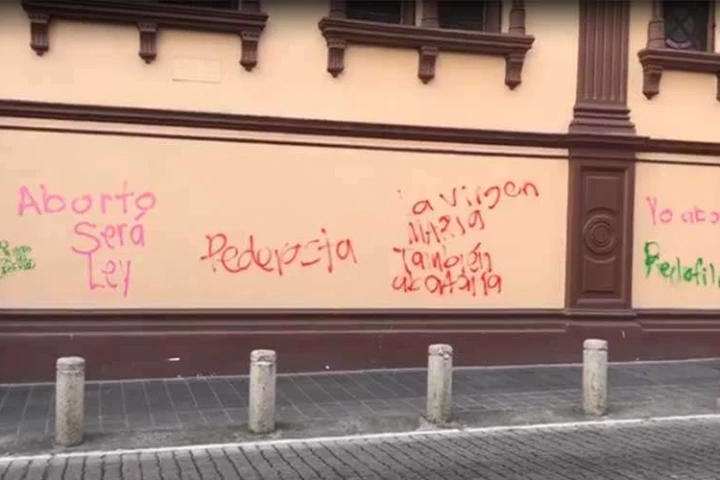 Aborto
Será
Ley
Pederasta
la virgen
MARIA
También
abortaria
Yo abo
Pedofil